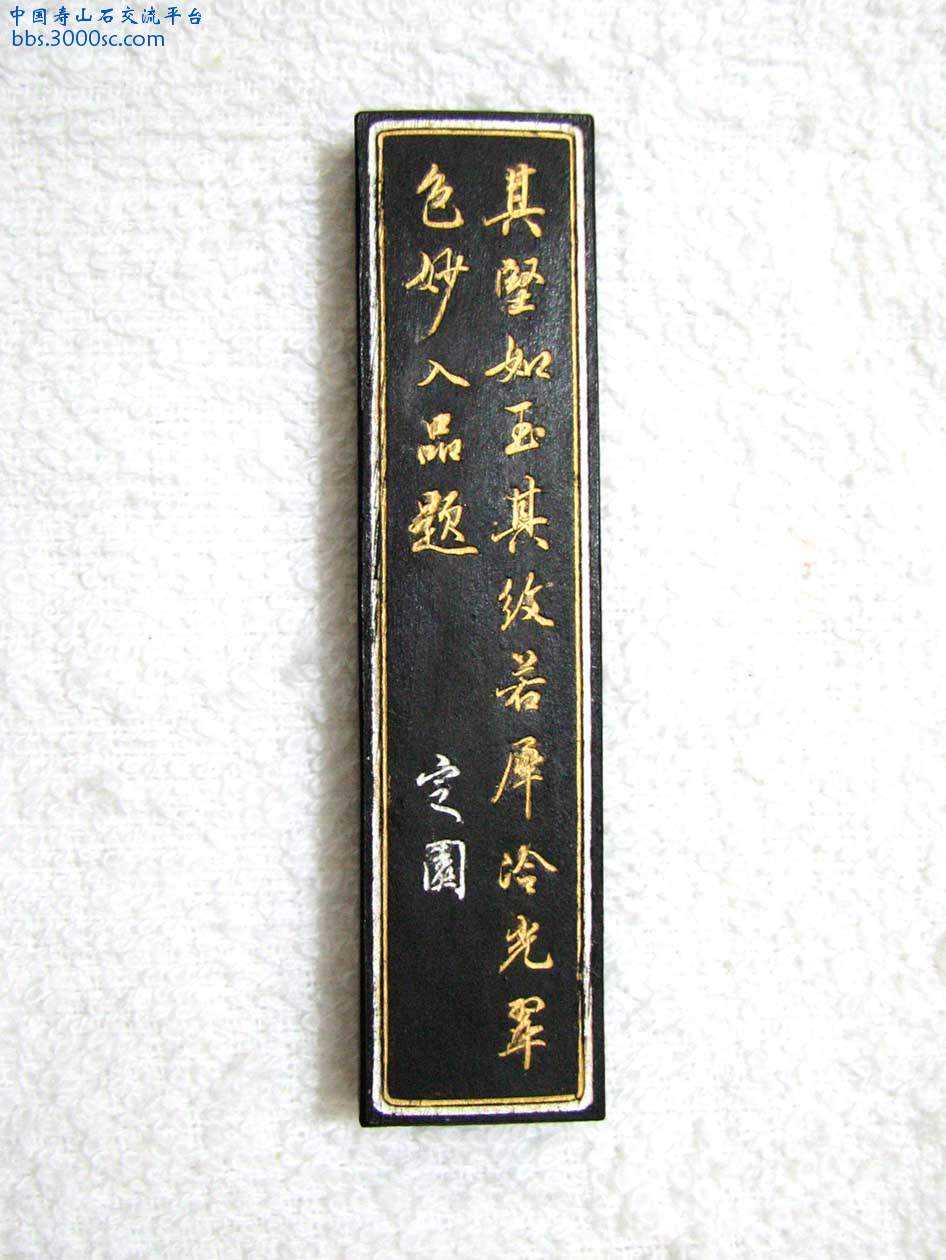 中国寿山石交流平台
bbs.3000sc.com
其堅如玉其紋若犀冷光翠
色妙入品題
定園